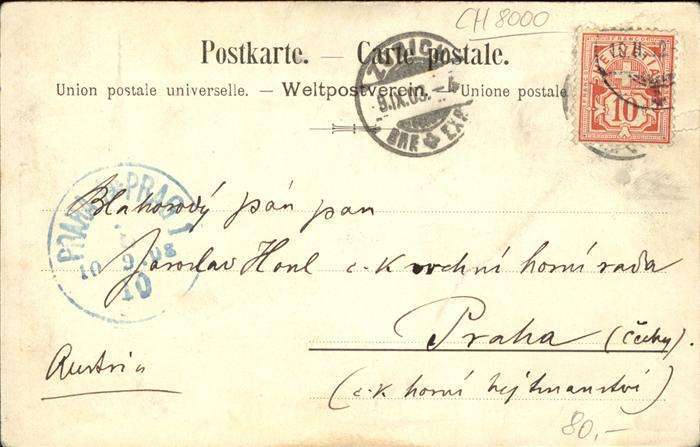 CH 8000
Postkarte. — Carte postale.
Union postale universelle. — Weltpostverein. — Unione postale
ZÜRICH
9.IX.03.
BRF. EXP.
HELVETIA
FRANCO
10
PRAG 1
10 9 08
10
Blahorodý pán pan
Jaroslav Honl c. k vrchní horní rada
Praha (Čechy).
Austria
(c. k horní hejtmanství)
80.-